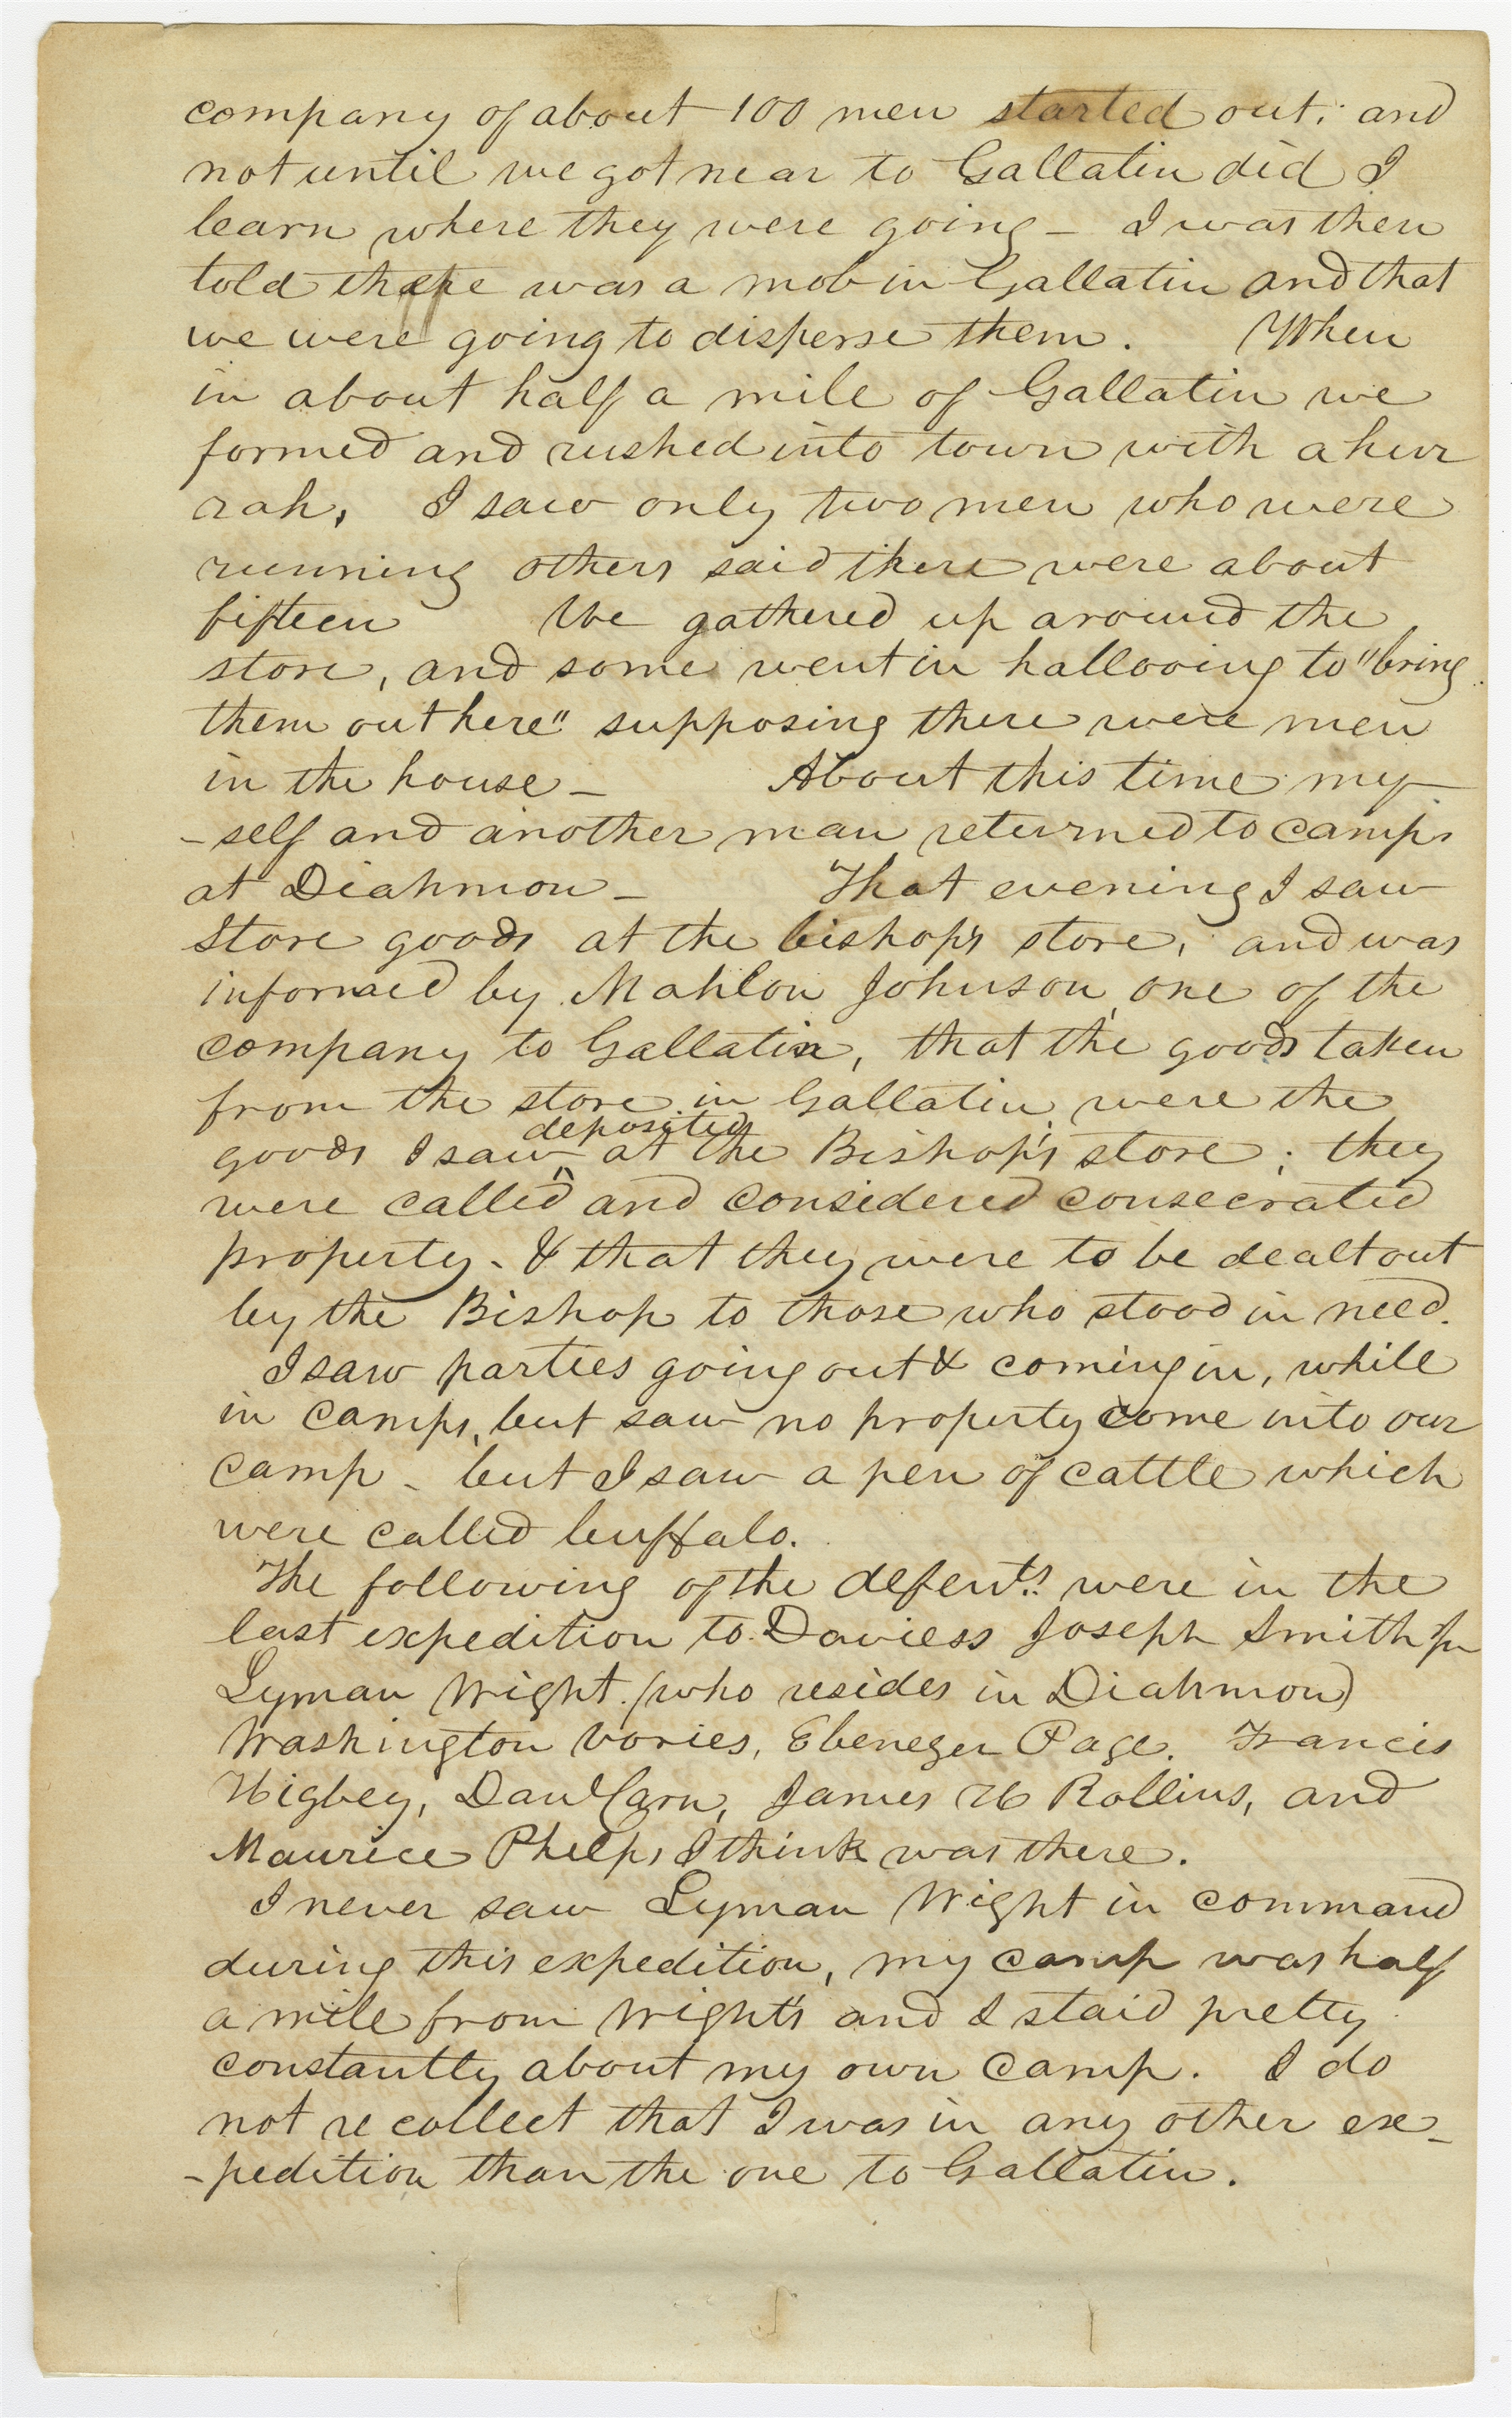 company of about 100 men started out; and
not until we got near to Gallatin did I
learn where they were going – I was then
told there was a mob in Gallatin and that
we were going to disperse them. When
in about half a mile of Gallatin we
formed and rushed into town with a hur
rah, I saw only two men who were
running others said there were about
fifteen We gathered up around the
store, and some went in hallooing to "bring
them out here" supposing there were men
in the house – About this time my
-self and another man returned to camp,
at Diahmon – That evening I saw
store goods at the bishop's store, and was
informed by Mahlon Johnson, one of the
company to Gallatin, that the goods taken
from the store in Gallatin, were the
deposited
goods I saw ^ at the Bishop's store; they
were called and considered consecrated
property - & that they were to be dealt out
by the Bishop to those who stood in need.
I saw parties going out & coming in, while
in camp, but saw no property come into our
camp - but I saw a pen of cattle which
were called buffalo.
The following of the defents. were in the
last expedition to Daviess Joseph Smith Jr
Lyman Wight (who resides in Diahmon)
Washington Vories, Ebenezer Page. Francis
Higbey, Danl Carn, James H Rollins, and
Maurice Phelps I think was there.
I never saw Lyman Wight in command
during this expedition, my camp was half
a mile from Wight's and I staid pretty
constantly about my own camp. I do
not recollect that I was in any other ex-
-pedition than the one to Gallatin.